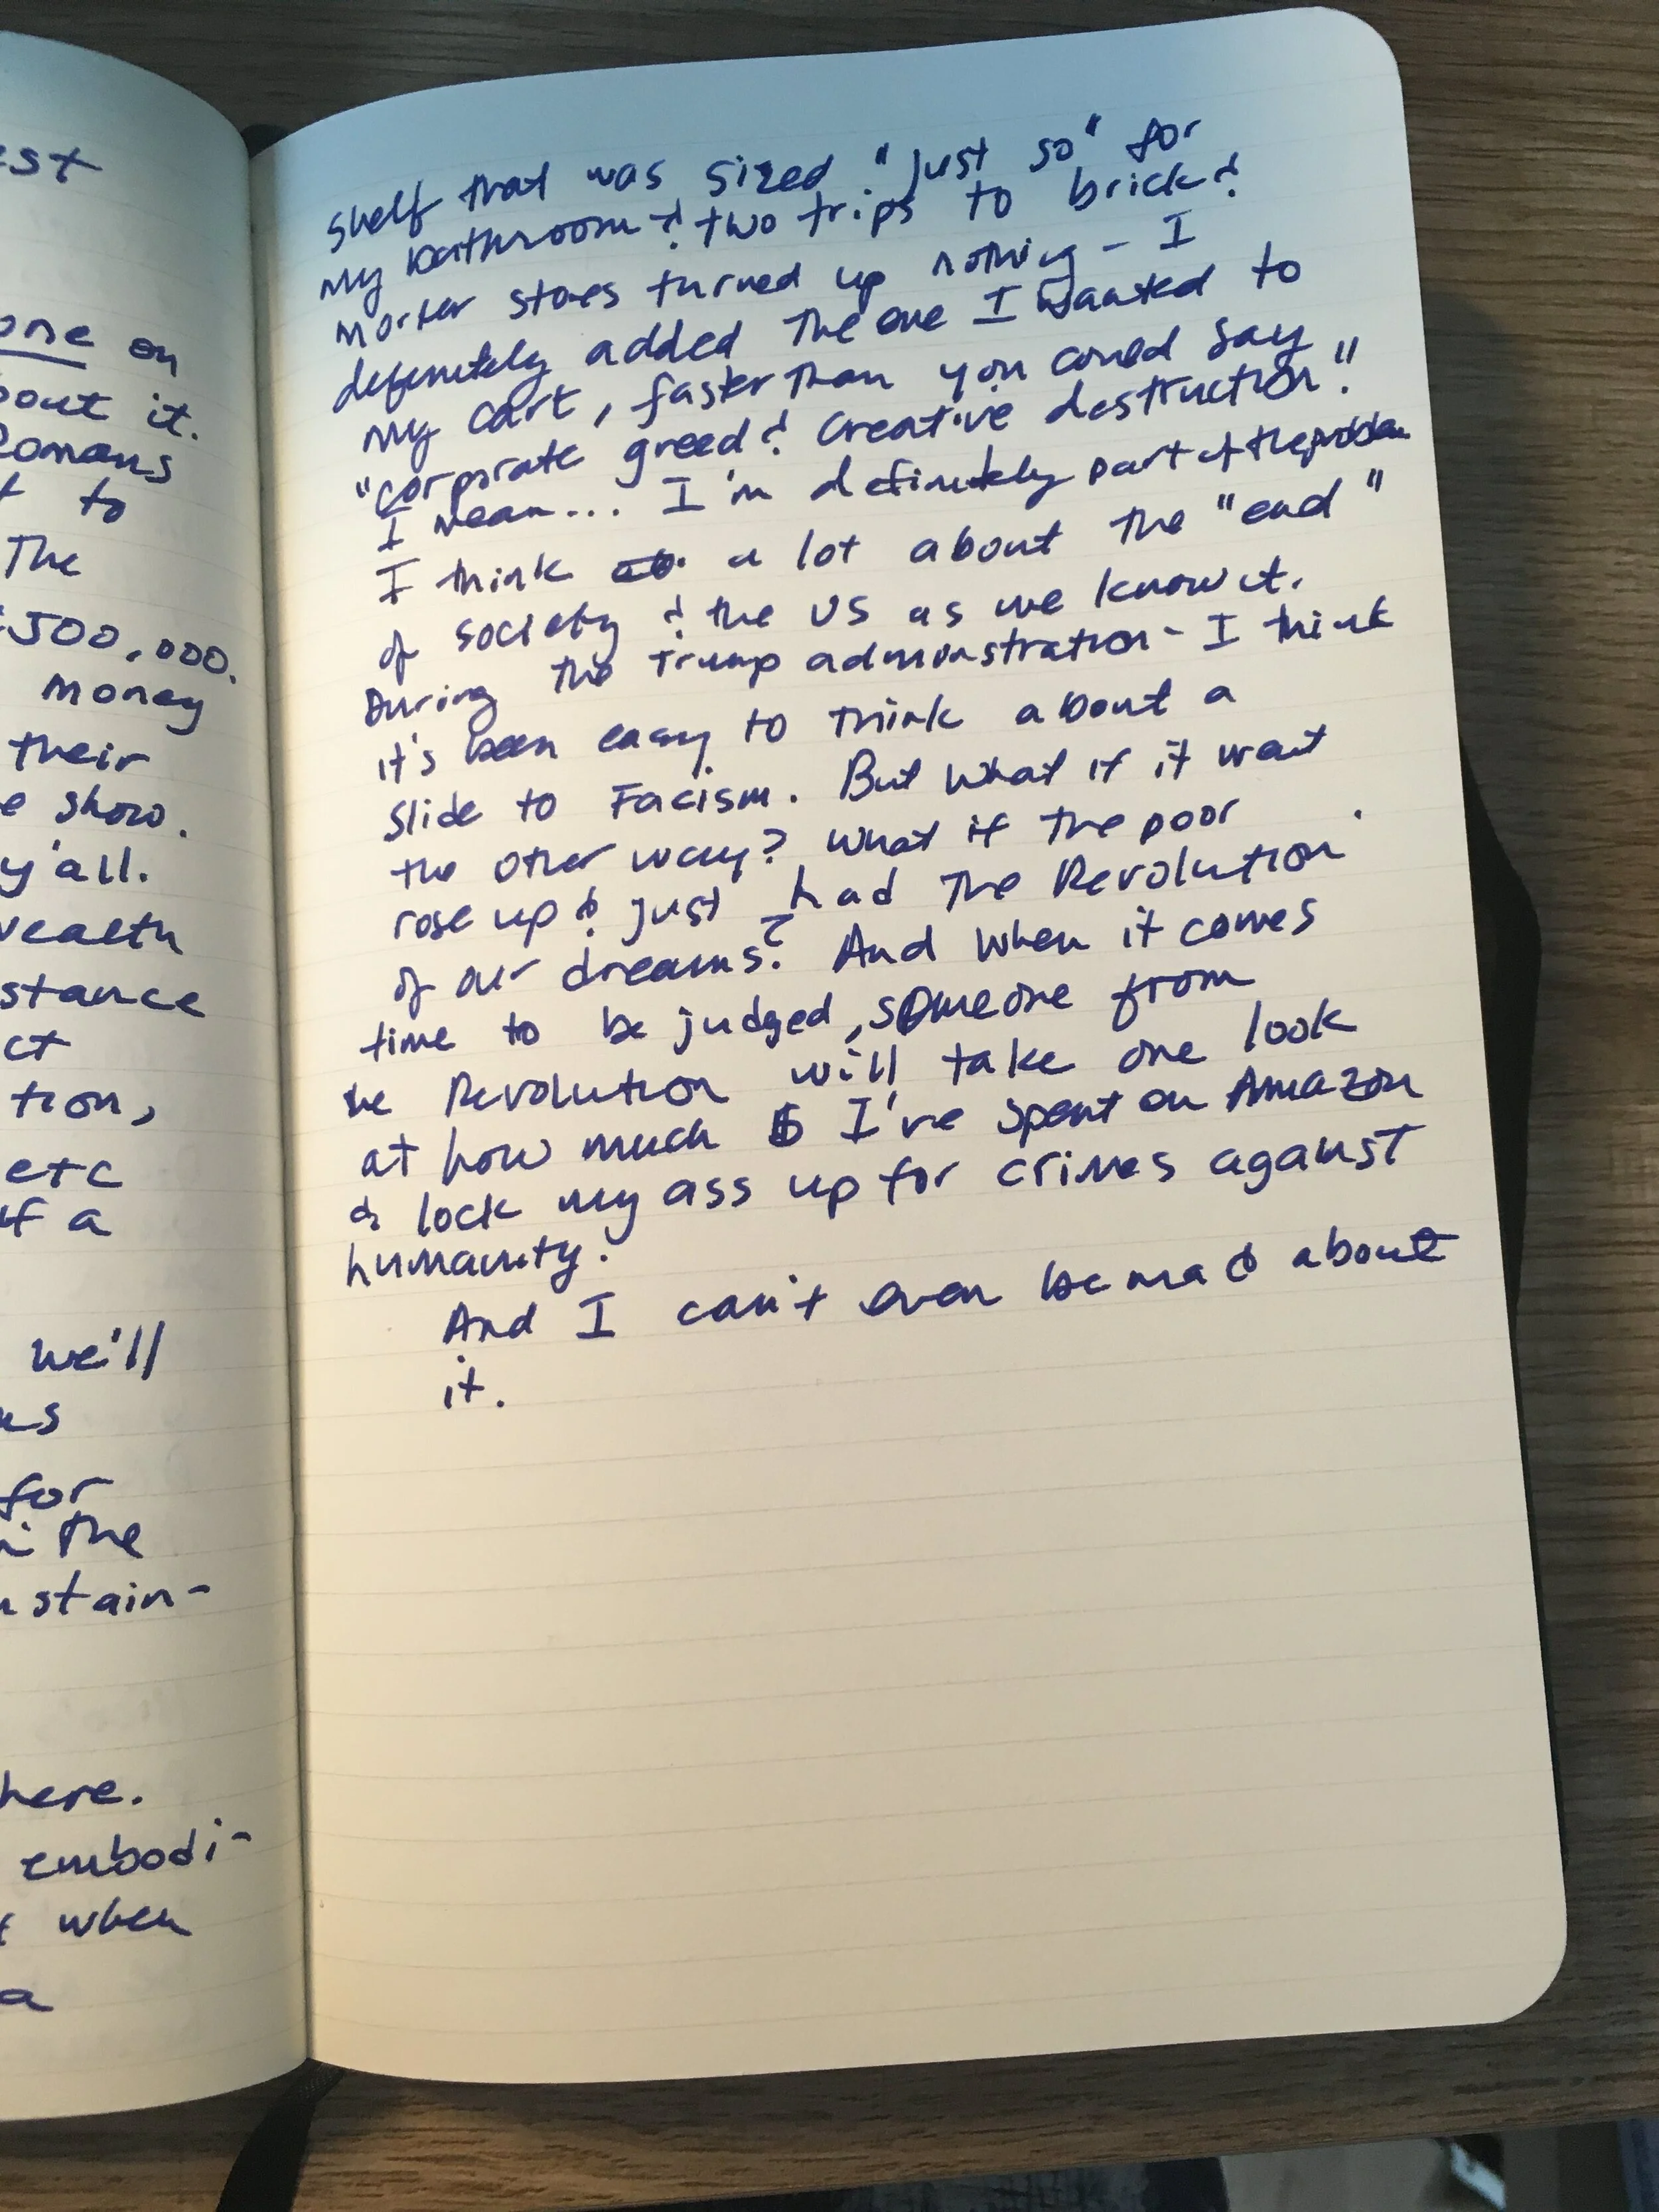 est
one on
bout it.
Romans
t to
The
$500,000.
money
their
e show.
y'all.
wealth
stance
ct
tion,
etc
if a
we'll
us
for
in the
stain-
here.
embodi-
when
a
shelf that was sized "just so" for
my bathroom & two trips to brick &
morter stores turned up nothing - I
definitely added the one I wanted to
my cart, faster than you could say
"corporate greed & creative destruction!"
I mean... I'm definitely part of the problem
I think a lot about the "end"
of society & the US as we know it.
During the Trump administration - I think
it's been easy to think about a
slide to Facism. But what if it wait
the other way? What if the poor
rose up & just had the Revolution
of our dreams? And when it comes
time to be judged, someone from
he Revolution will take one look
at how much $ I've spent on Amazon
& lock my ass up for crimes against
humanity.
And I can't even be mad about
it.